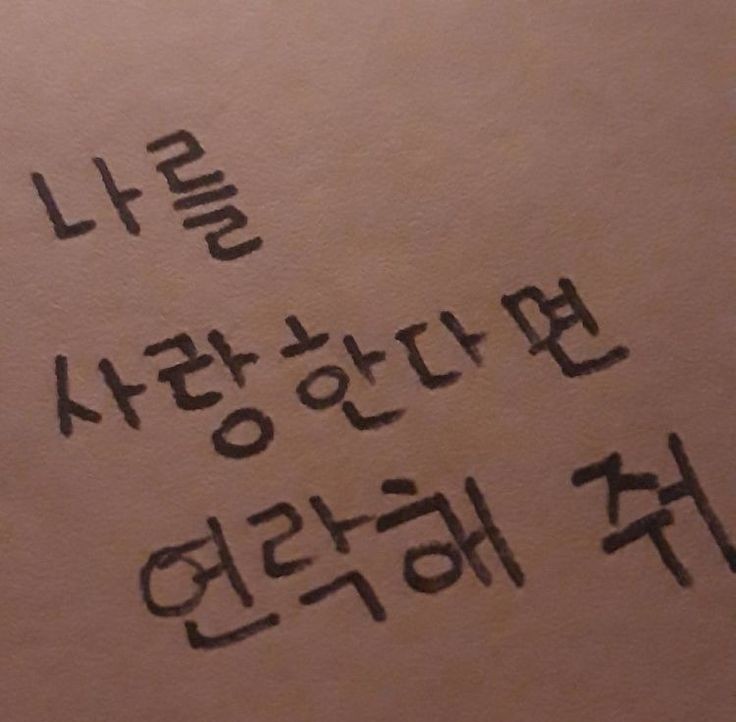 나를
사랑한다면
연락해 줘